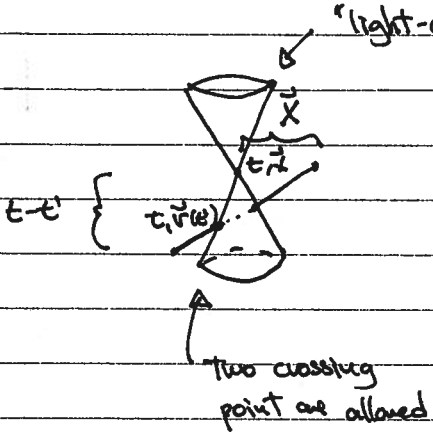 "light-c
X⃗
t, x⃗
t-t'
t, r⃗(t')
Two crossing
point are allowed